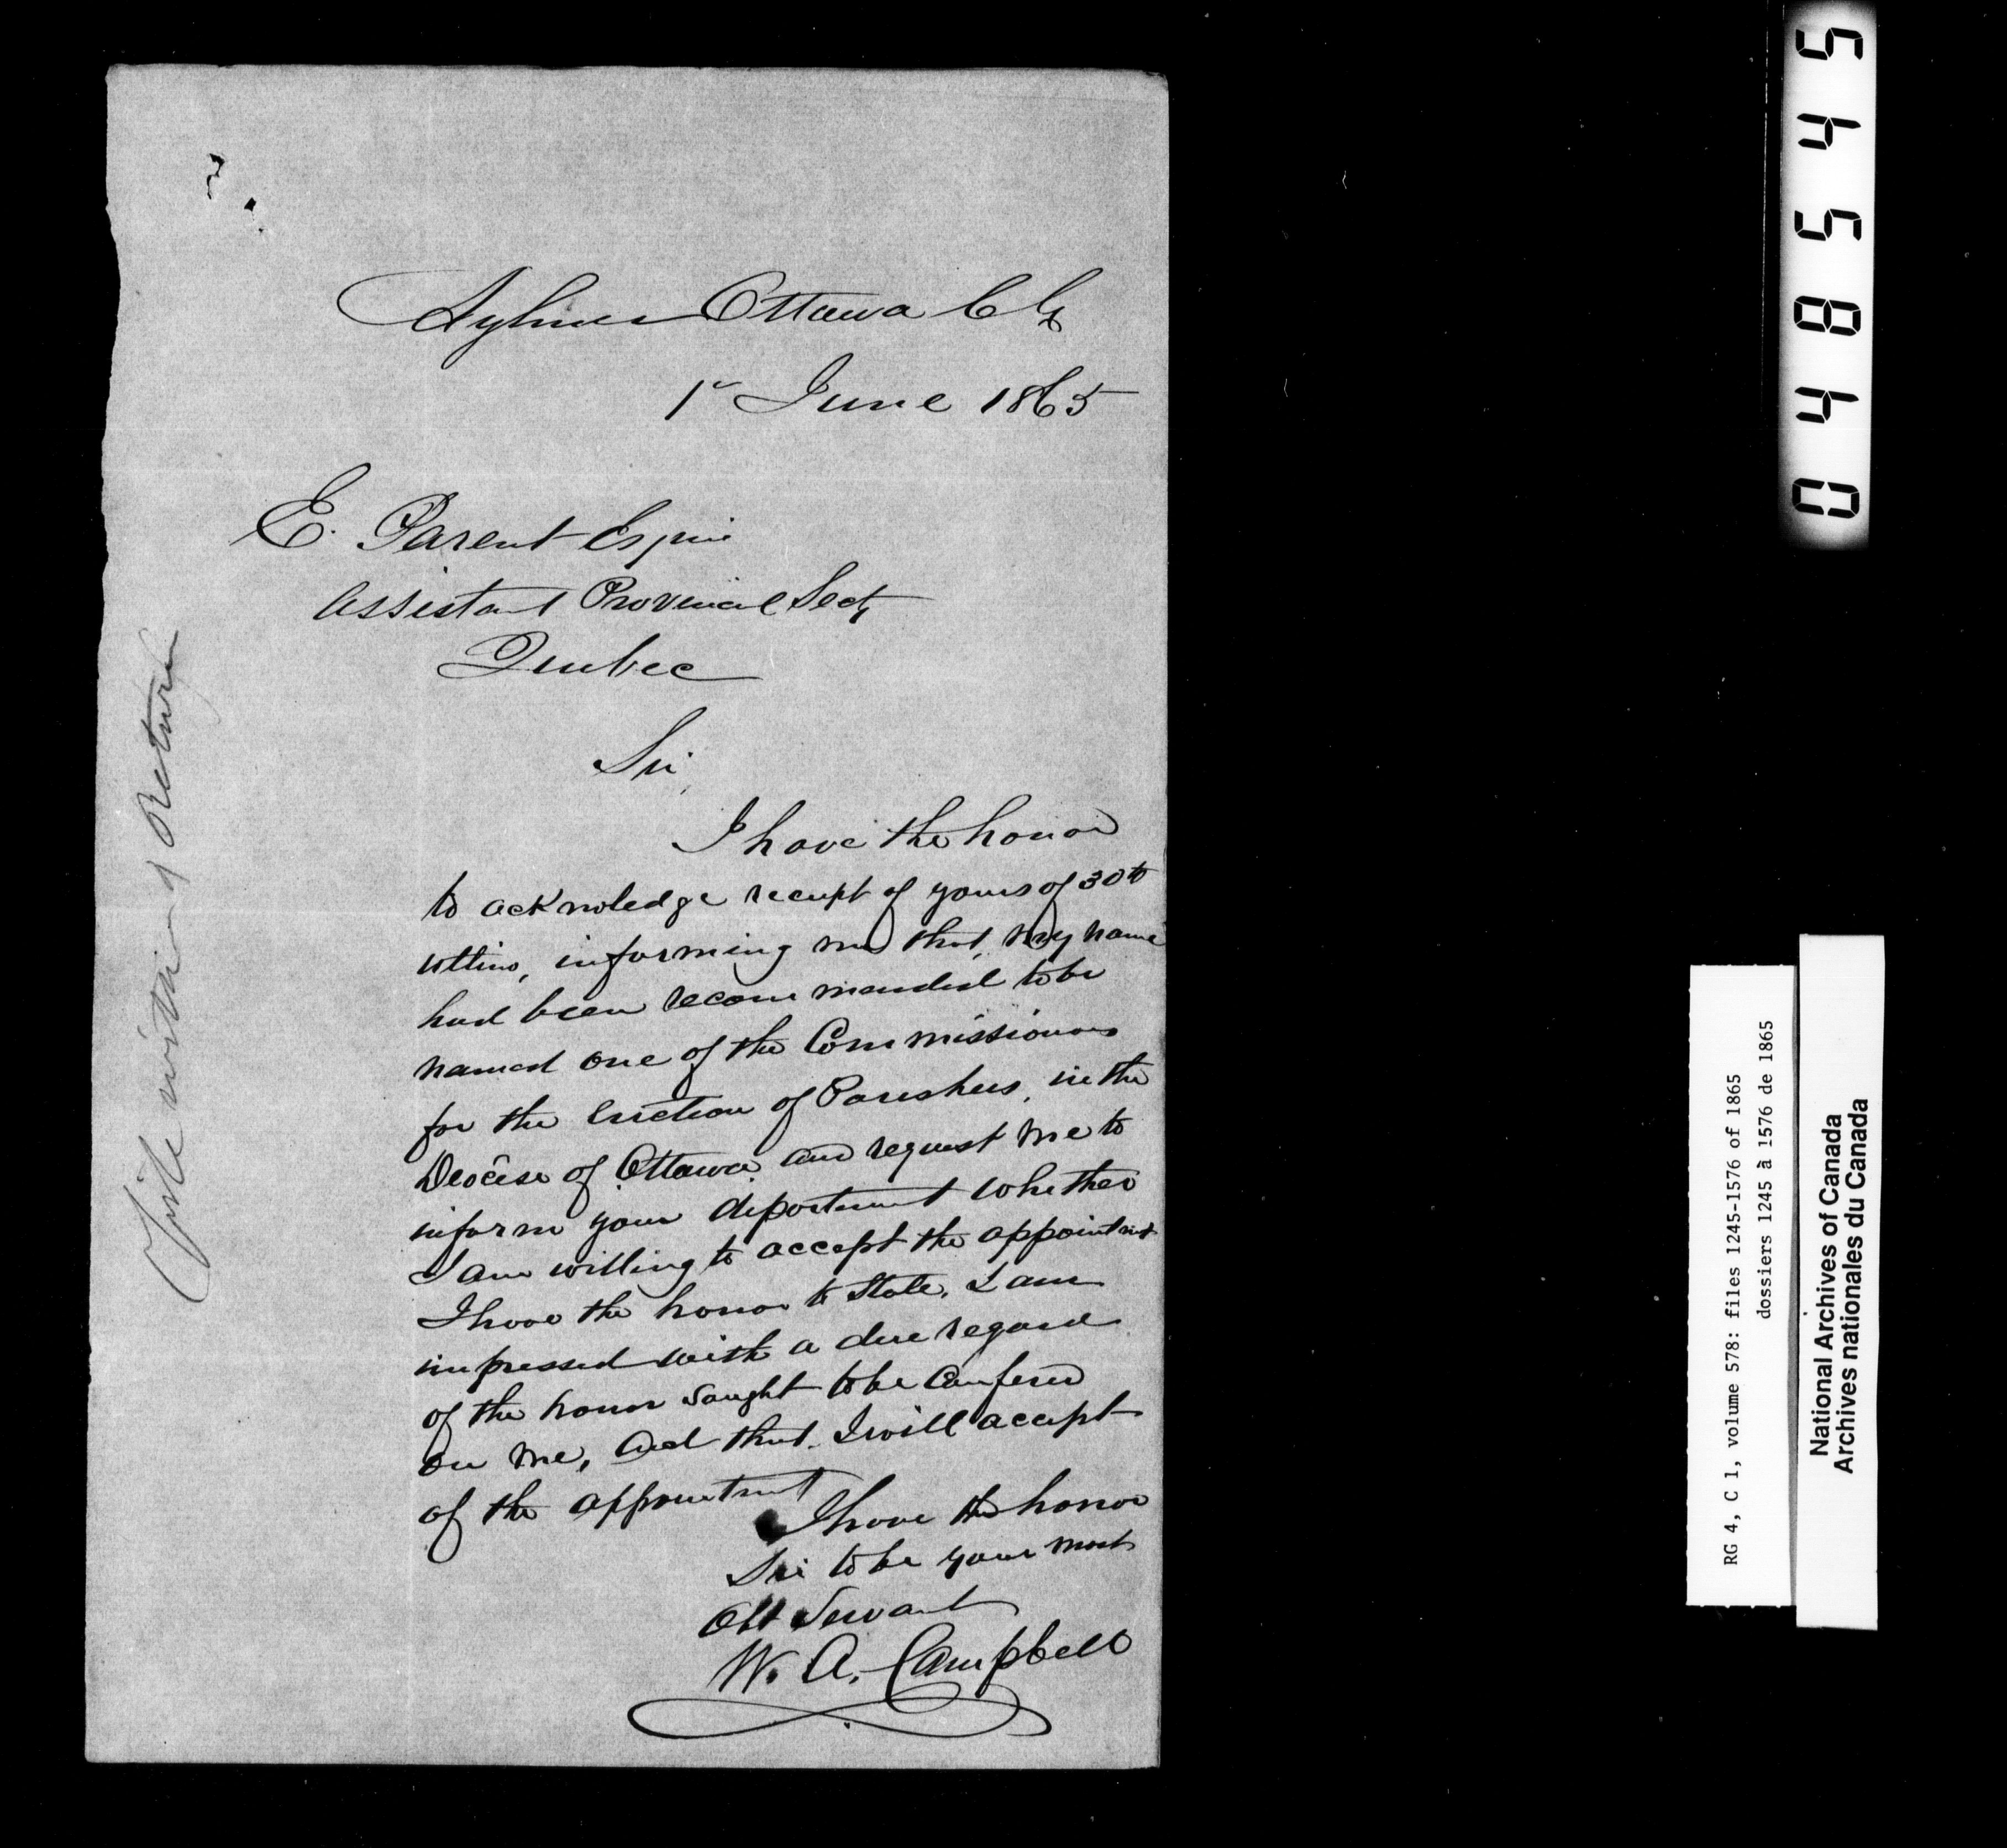 Aylmer Ottawa Cty
1st June 1865
E. Parent Esquire
Assistant Provincial Secty
Quebec
Sir,
I have the honor
to acknowledge receipt of yours of 30th
ultimo, informing me that, my name
had been recommended to be
named one of the Commissioners
for the Erection of Parishes, in the
Diocese of Ottawa, and request me to
inform your department whether
I am willing to accept the appointment
I have the honor to state, I am
impressed with a due regard
of the honor sought to be Confered
on me, And that I will accept
of the appointment
I have the honor
Sir to be your most
Obt Servant
W. A. Campbell
within & Return
048545
RG 4, C 1, volume 578: files 1245-1576 of 1865
dossiers 1245 à 1576 de 1865
National Archives of Canada
Archives nationales du Canada